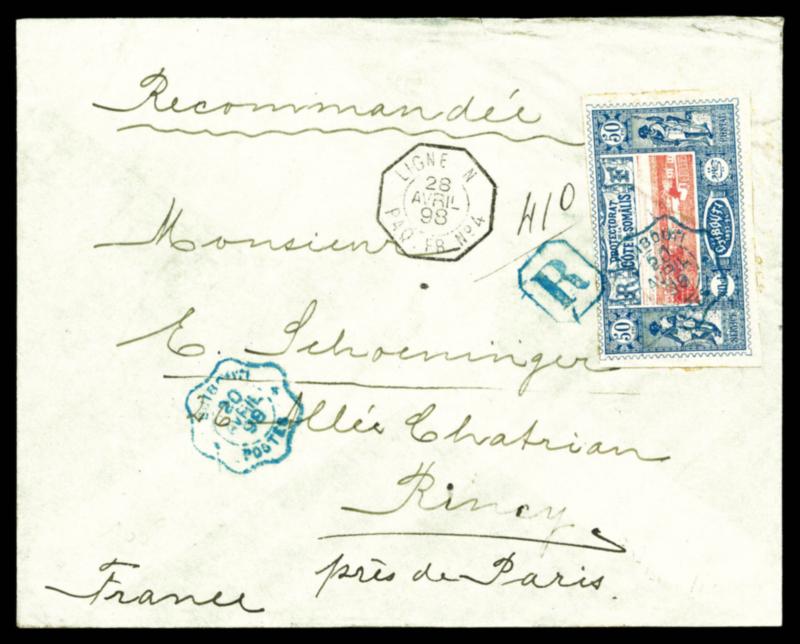 Recommandée
LIGNE N
28
AVRIL
98
PAQ. FR. Nº4
410
R
50
50
PROTECTORAT
CÔTE DES SOMALIS
RF
DJIBOUTI
POSTES
Monsieur
E. Schoeninger
20
AVRIL
98
POSTES
Allée Chatrian
Rincy
près de Paris.
France